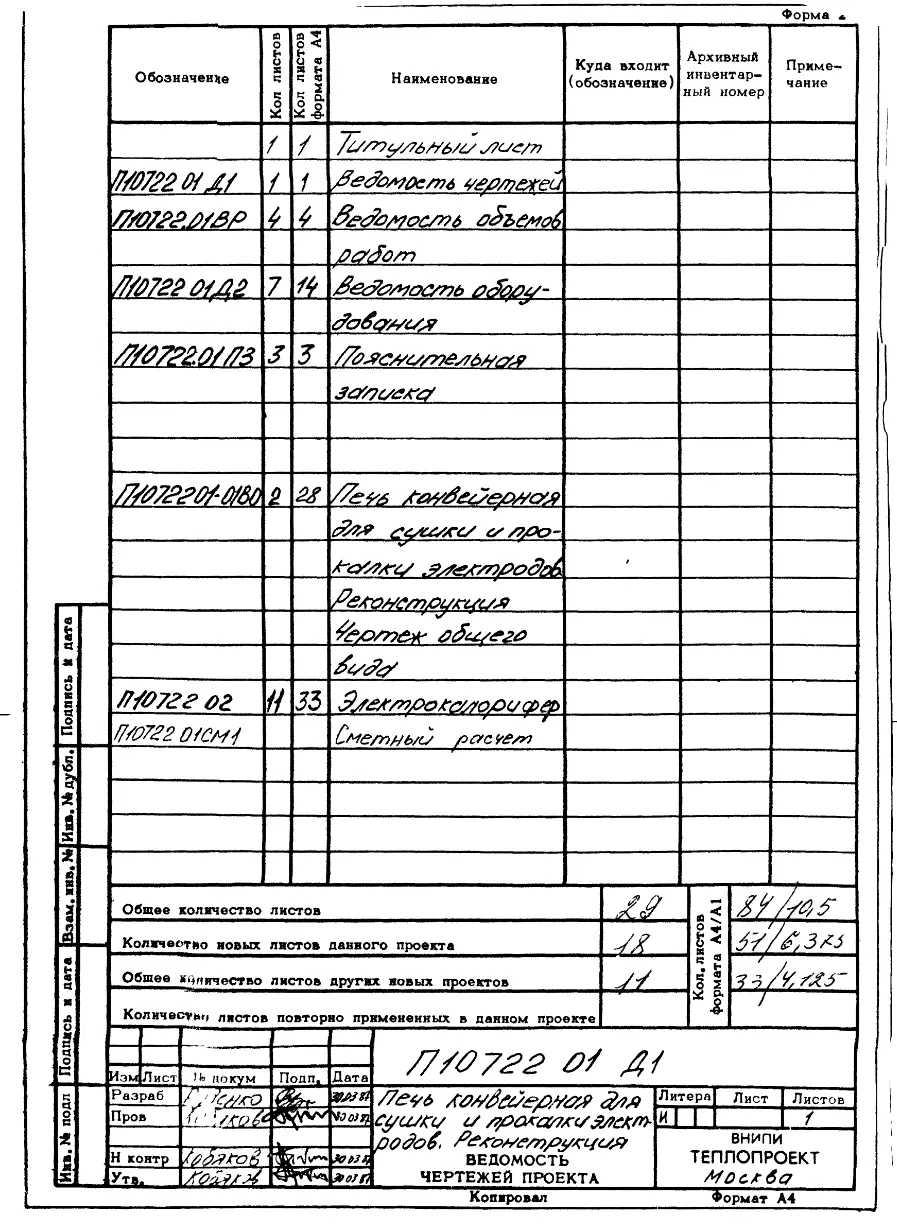 Форма
Обозначение
Кол листов
Кол листов формата А4
Наименование
Куда входит (обозначение)
Архивный инвентар- ный номер
Приме- чание
1 1 Титульный лист
П10722 01 Д1 1 1 Ведомость чертежей
П10722.01ВР 4 4 Ведомость объемов
работ
П10722 01Д2 7 14 Ведомость обору-
дования
П10722.01ПЗ 3 3 Пояснительная
записка
П1072201-01ВО 2 28 Печь конвейерная
для сушки и про-
калки электродов
Реконструкция
Чертеж общего
вида
П10722 02 11 33 Электрокалорифер
П10722 01СМ1 Сметный расчет
Общее количество листов 29
Количество новых листов данного проекта 18
Общее количество листов других новых проектов 11
Количество листов повторно примененных в данном проекте
Кол. листов формата А4/А1
84/10,5
51/6,375
33/4,125
Подпись и дата
Инв. № дубл.
Взам. инв. №
Подпись и дата
Инв. № подл
П10722 01 Д1
Изм Лист № докум Подп. Дата
Разраб 30.03
Пров 30 03
Н контр Кобяков 30 03
Утв. Кобяков 30 03
Печь конвейерная для
сушки и прокалки элект-
родов. Реконструкция
ВЕДОМОСТЬ
ЧЕРТЕЖЕЙ ПРОЕКТА
Литера Лист Листов
И 1
ВНИПИ
ТЕПЛОПРОЕКТ
Москва
Копировал Формат А4